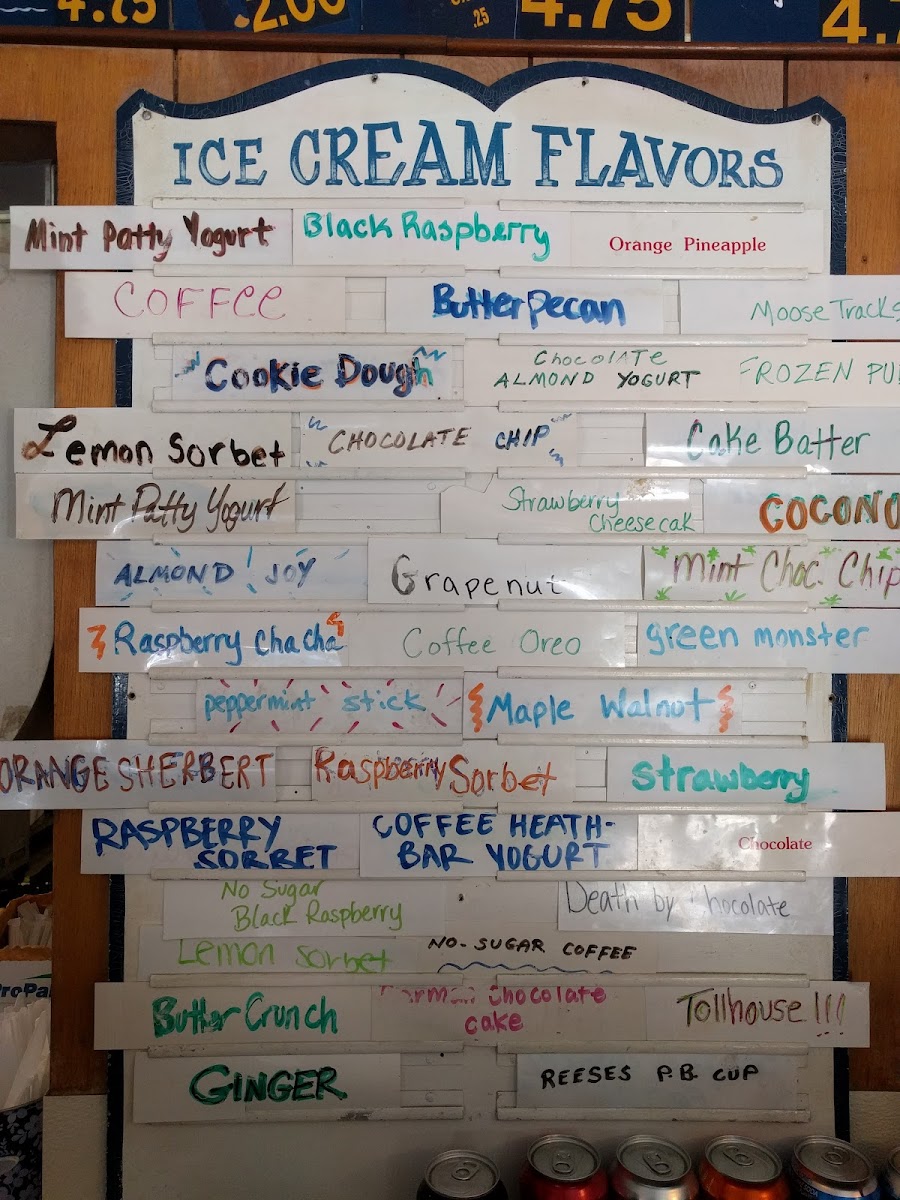 4.75 2.00 .25 4.75
ICE CREAM FLAVORS
Mint Patty Yogurt Black Raspberry Orange Pineapple
COFFEE Butter pecan Moose Tracks
Cookie Dough Chocolate FROZEN
ALMOND YOGURT
Lemon Sorbet CHOCOLATE CHIP Cake Batter
Mint Patty Yogurt Strawberry
Cheesecak COCONO
ALMOND JOY Grapenut Mint Choc. Chip
Raspberry Cha cha Coffee Oreo green monster
peppermint stick Maple Walnut
ORANGE SHERBERT Raspberry Sorbet strawberry
RASPBERRY COFFEE HEATH-
SORBET BAR YOGURT Chocolate
No Sugar
Black Raspberry Death by Chocolate
Lemon sorbet NO-SUGAR COFFEE
Butter Crunch German Chocolate
cake Tollhouse!!!
GINGER REESES P.B. CUP